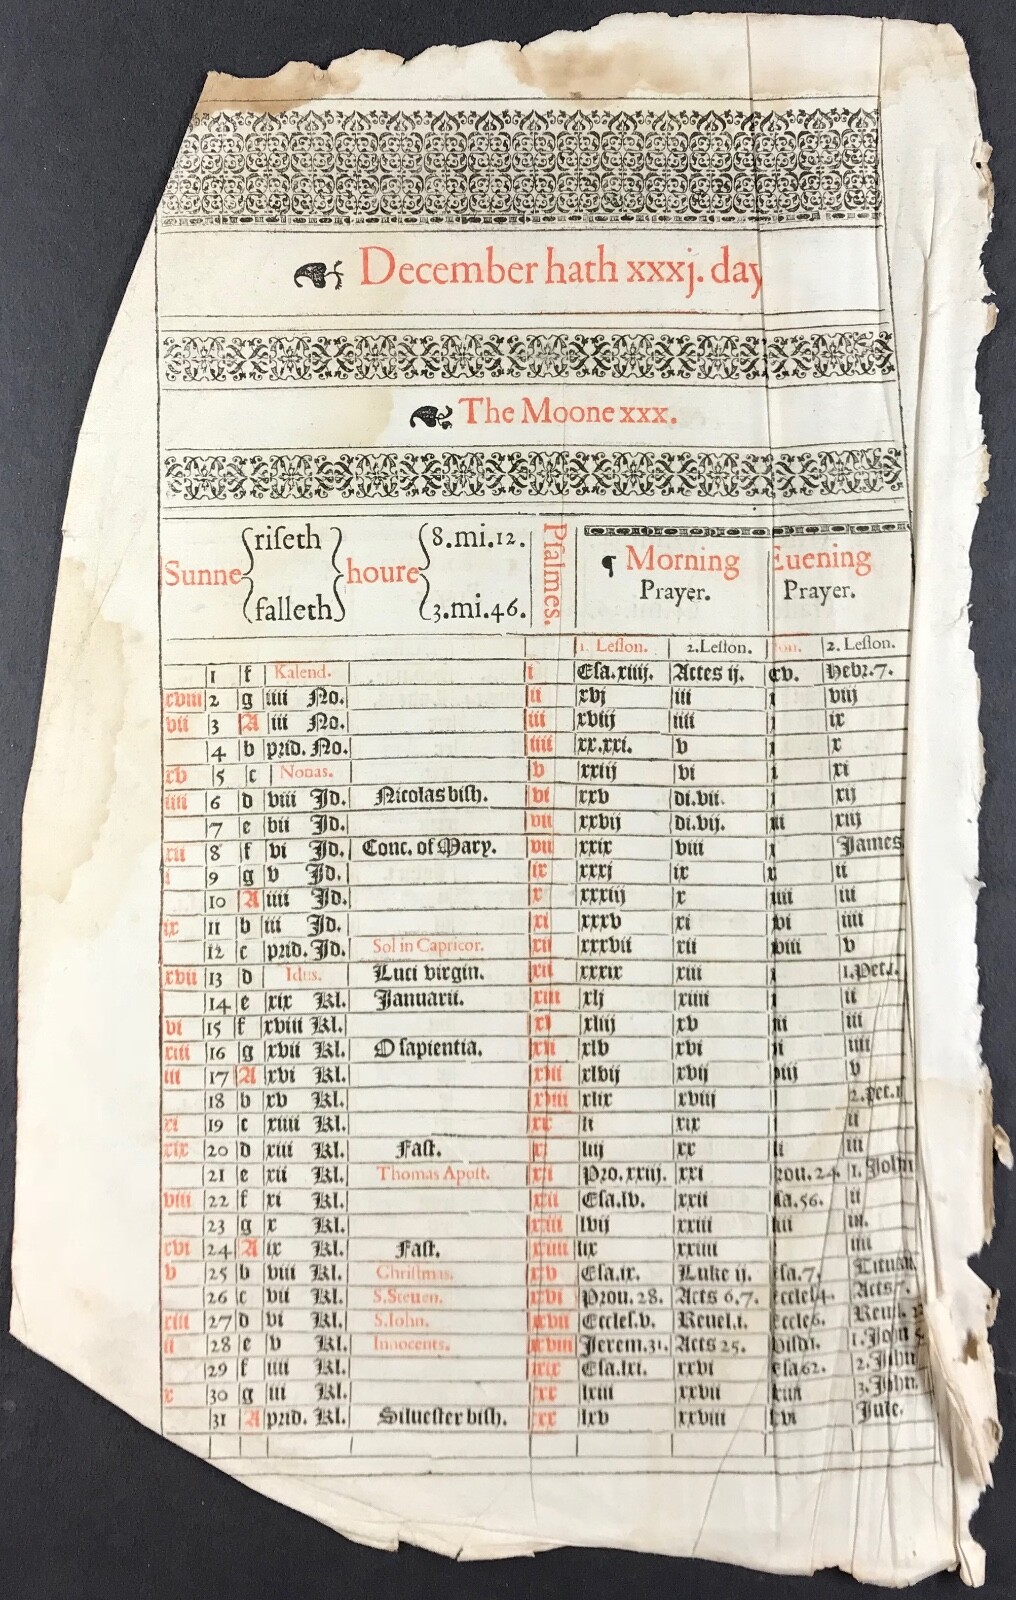 December hath xxxj. day
The Moone xxx.
Sunne riſeth houre 8.mi.12.
falleth 3.mi.46.
Pſalmes.
¶ Morning Euening
Prayer. Prayer.
1. Leſſon. 2.Leſſon. 2. Leſſon.
1 f Kalend. i Eſa.xiiij. Actes ij. Hebr.7.
xviii 2 g iiii No. ii xvj iii viij
vii 3 A iii No. iii xviij iiii ix
4 b prid. No. iiii xx.xxi. v x
xv 5 c Nonas. v xxiij vi xi
iiii 6 d viii Jd. Nicolas biſh. vi xxv di.vii. xij
7 e vii Jd. vii xxvij di.vij. xiij
xii 8 f vi Jd. Conc. of Mary. xxix viii James
i 9 g v Jd. ix xxxj ix ii
10 A iiii Jd. x xxxiij x iiii iii
ix 11 b iii Jd. xi xxxv xi vi iiii
12 c prid. Jd. Sol in Capricor. xii xxxvii xii viii v
xvii 13 d Idus. Luci virgin. xxxix xiii 1.Pet.1.
14 e xix Kl. Januarii. xlj xiiii ii
vi 15 f xviii Kl. xliij xv iii
xiii 16 g xvii Kl. O ſapientia. xlv xvi iiii
iii 17 A xvi Kl. xlvij xvij v
18 b xv Kl. xviii xlix xviij 2.Pet.1
xi 19 c xiiii Kl. li xix ii
xix 20 d xiii Kl. Faſt. liij xx iii
21 e xii Kl. Thomas Apoſt. Pro.xxiij. xxi 24. 1. John
viii 22 f xi Kl. Eſa.lv. xxii 56. ii
23 g x Kl. lvij xxiii iii.
xvi 24 A ix Kl. Faſt. lix xxiiii iiii
v 25 b viii Kl. Chriſtmas. xxv Eſa.ix. Luke ij. Eſa.7.
26 c vii Kl. S.Steuen. xxvi Prou. 28. Acts 6.7. Eccleſ4. Acts 7.
xiii 27 d vi Kl. S.Iohn. xxvii Eccleſ.v. Reuel.i. Eccle6. Reuel.
ii 28 e v Kl. Innocents. xxviii Jerem.31. Acts 25. 1.John 5.
29 f iiii Kl. xxix Eſa.lxi. xxvi Eſa62. 2.John
x 30 g iii Kl. lxiii xxvii 3.John.
31 A prid. Kl. Silueſter biſh. lxv xxviii Jude.